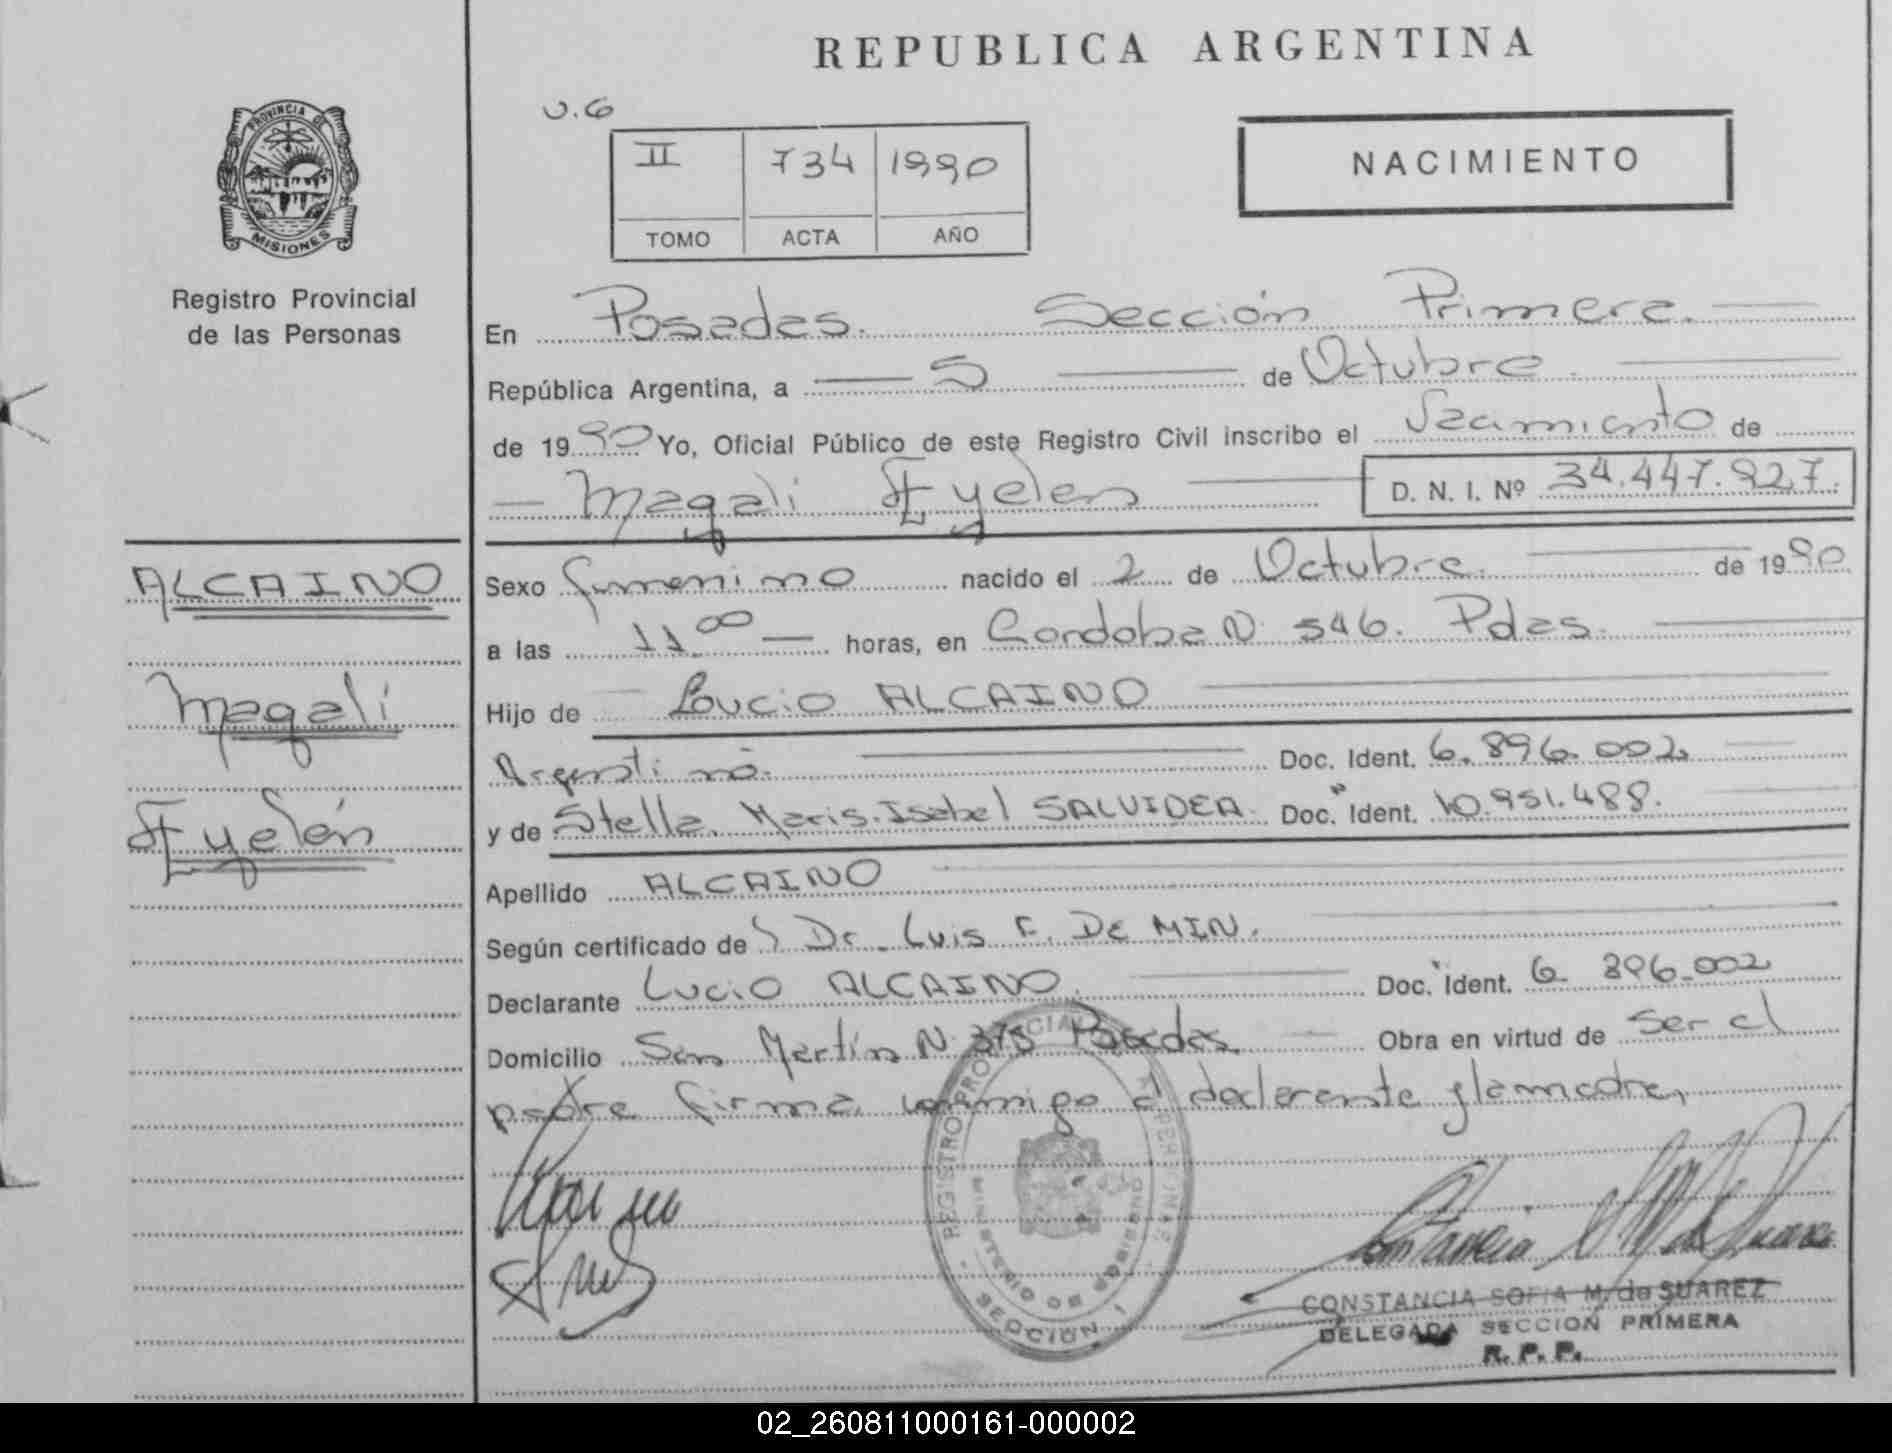 REPUBLICA ARGENTINA
PROVINCIA DE
MISIONES
Registro Provincial
de las Personas
II 734 1990
TOMO ACTA AÑO
NACIMIENTO
En Posadas. Sección Primera.
República Argentina, a 5 de Octubre
de 1990 Yo, Oficial Público de este Registro Civil inscribo el Nacimiento de
Magali Ayelen D. N. I. Nº 34.447.927.
ALCAINO
Magali
Ayelén
Sexo femenino nacido el 2 de Octubre de 1990
a las 11.00 horas, en Cordoba N. 546. Pdas.
Hijo de Lucio ALCAINO
Argentino. Doc. Ident. 6.896.002
y de Stella Maris Isabel SALVIDEA Doc. Ident. 10.951.488.
Apellido ALCAINO
Según certificado de Dr. Luis F. DE MIN.
Declarante Lucio ALCAINO Doc. Ident. 6.896.002
Domicilio San Martín N. 375 Posadas Obra en virtud de ser el
padre firma conmigo el declarante y la madre,
REGISTRO PROVINCIAL
MINISTERIO DE GOBIERNO
SECCIÓN 1
CONSTANCIA SOFIA M. de SUAREZ
DELEGADA SECCION PRIMERA
R. P. P.
02_260811000161-000002